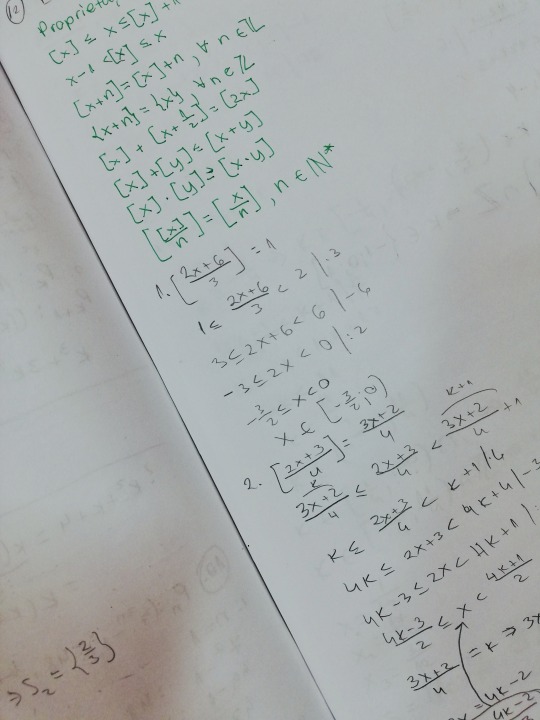 12
Proprietăț
[x] ≤ x ≤ [x] + 1
x-1 < [x] ≤ x
[x+n] = [x] + n, ∀ n ∈ Z
{x+n} = {x}, ∀ n ∈ Z
[x] + [x + 1/2] = [2x]
[x] + [y] ≤ [x+y]
[x] · [y] ≥ [x·y]
[[x]/n] = [x/n], n ∈ N*
1. [2x+6/3] = 1
1 ≤ 2x+6/3 < 2 |·3
3 ≤ 2x+6 < 6 |-6
-3 ≤ 2x < 0 |:2
-3/2 ≤ x < 0
x ∈ [-3/2; 0)
2. [2x+3/4] = 3x+2/4
k k+1
3x+2/4 ≤ 2x+3/4 < 3x+2/4 + 1
k ≤ 2x+3/4 < k+1 |·4
4k ≤ 2x+3 < 4k+4 |-3
4k-3 ≤ 2x < 4k+1 |:
4k-3/2 ≤ x < 4k+1/2
3x+2/4 = k ⇒ 3x
4k-2
⇒ S₂ = {2/3}